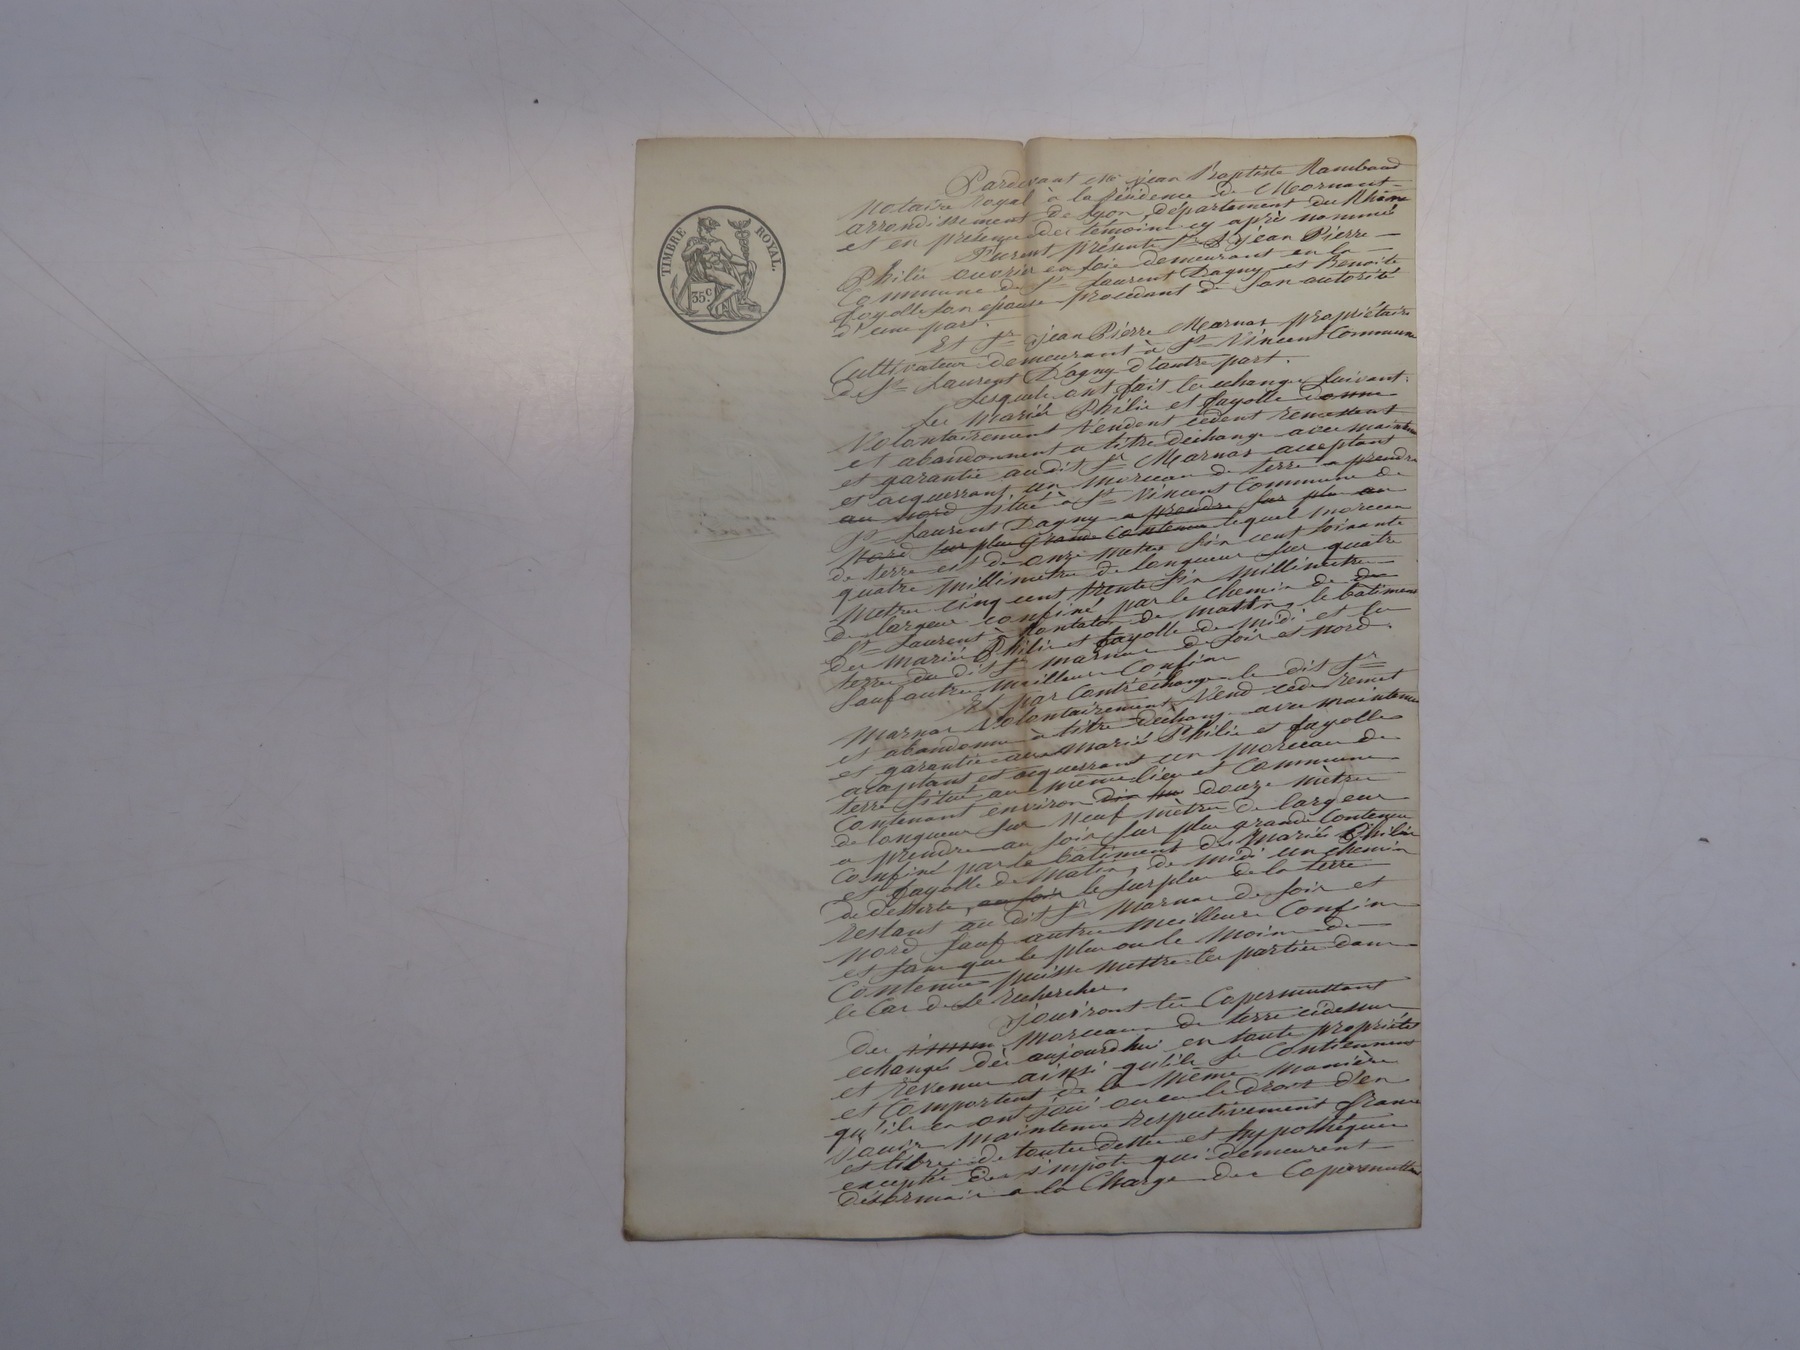 TIMBRE ROYAL.
35.c
Pardevant Me jean Baptiste Rambaud
Notaire royal à la résidence de Mornant
arrondissement de Lyon, département du Rhône
et en présence des témoins cy après nommés
Furent présents Sr jean Pierre
Philis ouvrier en soie demeurant en la
Commune de St Laurent Dagny et Benoite
fayolle son épouse procédant de son autorité
d'une part.
Et Sr jean Pierre Marnas propriétaire
Cultivateur demeurant à St Vincent Commune
de St Laurent Dagny d'autre part.
Lesquels ont fait les echanges suivant:
les mariés Philis et fayolle donne
Volontairement Vendent cèdent remettent
et abandonnent a titre déchange avec maintenue
et garantie audit Sr Marnas acceptant
et acquerrant un morceau de terre a prendre
au nord situé à St Vincent Commune de
St Laurent Dagny a prendre sur plus au
Nord sur plus grande Contenue lequel morceau
de terre est de onze metres six cent soixante
quatre millimetres de longueur sur quatre
metres cinq cent trente six millimetres
de largeur confiné par le chemin de du
St Laurent à de matin, le bâtiment
des mariés Philis et fayolle de midi et la
terre du dit Sr marnas de soir et nord.
Sauf autres meilleurs Confins
Et par Contréchange le dit Sr
Marnas Volontairement Vend cède remet
et abandonne à titre déchange avec maintenue
et garantie aux mariés Philis et fayolle
acceptant et acquerrant un morceau de
terre situé au même lieu et Commune
Contenant environ dix huit douze mètres
de longueur sur Neuf mètres de largeur
a prendre au soir sur plus grande Contenue
Confiné par le bâtiment des mariés Philis
et fayolle de Matin, de midi un chemin
de desserte, au soir le surplus de la terre
restant au dit Sr Marnas de soir et
nord sauf autres meilleurs Confins
et sans que le plus ou le moins de
Contenue puisse mettre les parties dans
le Cas de se rechercher.
jouiront les Copermuttant
des morceaux de terre cidessus
echangés dès aujourdhui en toute propriétés
et revenus ainsi qu'ils se Contiennent
et Comportent de la même manière
qu'ils en ont joui ou eu le droit d'en
jouir Maintenu respectivement francs
et libres de toutes dettes et hypothèques
exceptés des impôts qui demeurent
désormais a la Charge des Copermuttans